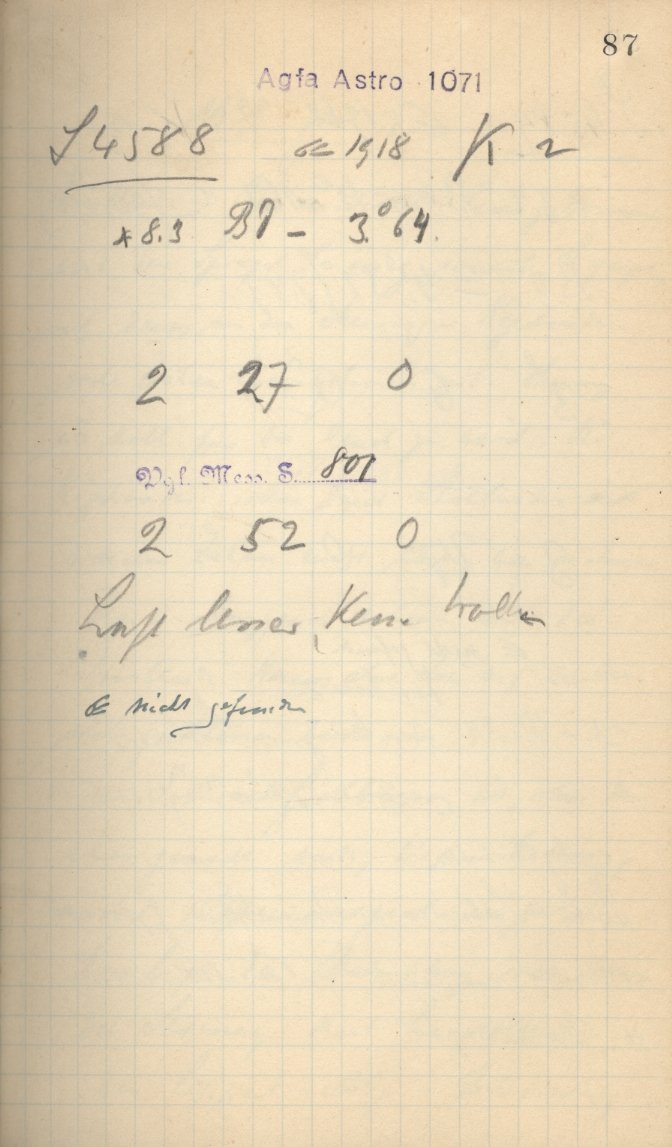 87
Agfa Astro 1071
J 4588 œ 1918 K 2
* 8.3 BD - 3.°64.
2 27 0
Vgl. Mess. S. 801
2 52 0
Luft besser, Keine Wolken
œ nicht gefunden